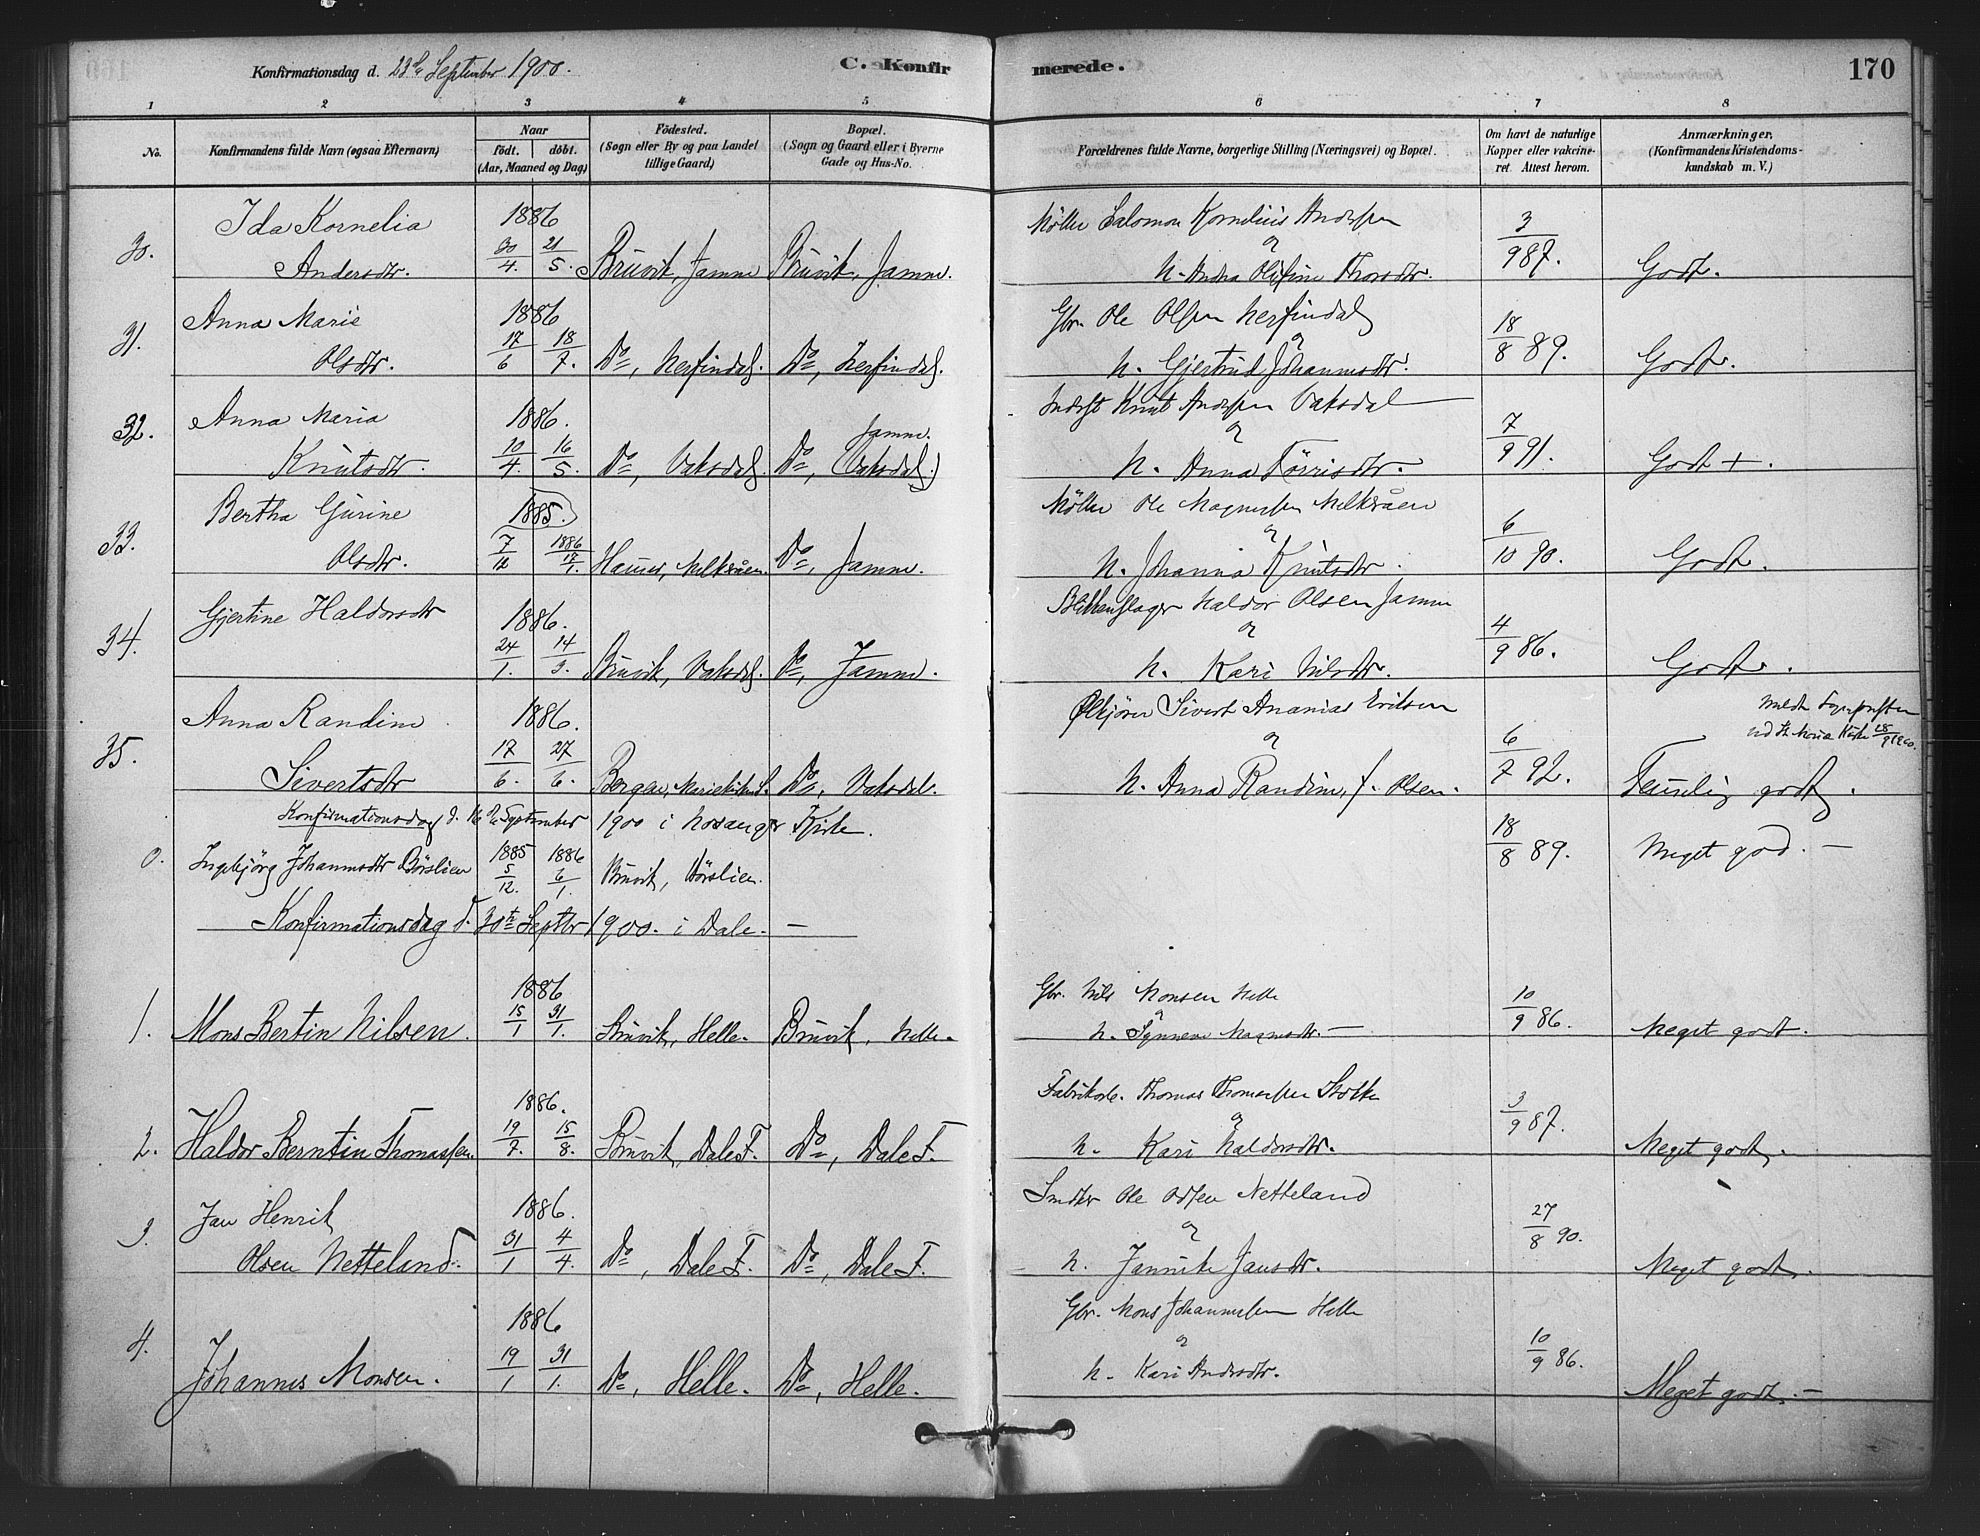 Konfirmationsdag d. 23de September 1900. C. Konfirmerede. 170
1 2 3 4 5 6 7 8
No.
Konfirmandens fulde Navn (ogsaa Efternavn)
Naar
født. døbt.
(Aar, Maaned og Dag)
Fødested.
(Sogn eller By og paa Landet
tillige Gaard)
Bopæl.
(Sogn og Gaard eller i Byerne
Gade og Hus-No.
Forældrenes fulde Navne, borgerlige Stilling (Næringsvei) og Bopæl.
Om havt de naturlige
Kopper eller vakcine-
ret. Attest herom.
Anmærkninger.
(Konfirmandens Kristendoms-
kundskab m. V.)
Ida Kornelia 1886 Møller Salomon Kornelius Andersen 3
30. Andersdtr. 30/4. 21/5. Bruvik, Jamne Bruvik, Jamne. og H. Olefine Thorsdtr. 9 87. Godt.
Anna Marie 1886 Gbr. Ole Olsen Herfindal 18
31. Olsdtr. 17/6 18/7. Do, Herfindal. Do, Herfindal. og H. Gjertrud Johannesdtr. 8 89. Godt.
Anna Maria 1886. Jamne. Knut Andersen Vaksdal 7
32. Knutsdtr. 10/4. 16/5. Do, Vaksdal. Do, (Vaksdal.) og H. Anna Tørrisdtr. 9 91. Godt +.
Bertha Gurine 1885. Møller Ole Magnessen Melkråen 6
33. Olsdtr. 7/12 1886 18/1. Hauser, Melkråen. Do, Jamne. og H. Johanna Knutsdtr. 10 90. Godt.
Gjertine Haldorsdtr 1886. Blikkenslager Haldor Olsen Jamne 4
34. 24/1. 14/3. Bruvik, Vaksdal. Do, Jamne. og H. Kari Nilsdtr. 9 86. Godt.
Anna Randine 1886. Ølkjører Sivert Ananias Eriksen 6
35. Sivertsdtr 17/6. 27/6. Bergen, Do, Vaksdal. og H. Anna Randine, f. Olsen. 7 92. Temmelig godt.
Konfirmationsdag d. 16de September 1900 i Hosanger Kirke.
0. Ingebjørg Johannesdtr Børslien 1885 5/12. 1886 6/1. Bruvik, Børslien. 18/8 89. Meget god. —
Konfirmationsdag d. 30te Septbr 1900. i Dale. —
1886 Gbr. Nils Monsen Helle 10
1. Mons Bertin Nilsen. 15/1 31/1. Bruvik, Helle. Bruvik, Helle. og H. Synneve Magnesdtr. — 9 86. Meget godt.
1886. Fabrikarb. Thomas Thomassen 3
2. Haldor Berntin Thomassen. 19/7. 15/8. Bruvik, Dale F. Do, Dale F. og H. Kari Haldorsdtr. 9 87. Meget godt.
Jan Henrik 1886. Ole Olsen Netteland 27
3. Olsen Netteland. 31/1 4/4. Do, Dale F. Do, Dale F. og H. Jannike Jansdtr. 8 90. Meget godt.
1886 Gbr. Mons Johannessen Helle 10
4. Johannes Monsen. 19/1 31/1. Do, Helle. Do, Helle. og H. Kari Andersdtr. 9 86. Meget godt. —